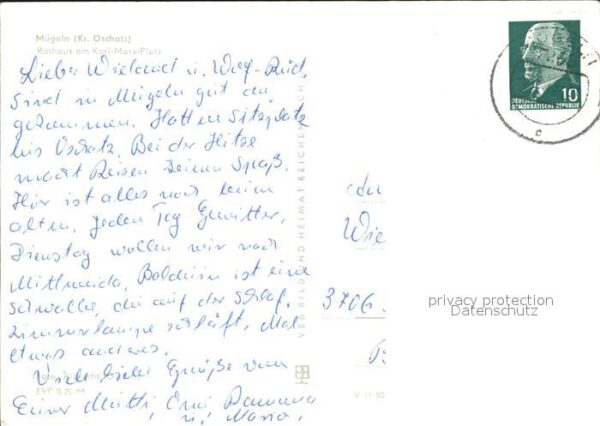 Mügeln (Kr. Oschatz)
Rathaus am Karl-Marx-Platz
Lieber Wieland u.
sind in Mügeln gut an
gekommen. Hatten Sitzplatz
bis Oschatz. Bei der Hitze
macht Reisen keinen Spaß.
Hier ist alles noch beim
alten. Jeden Tag Gewitter.
Dienstag wollen wir nach
Mittweida. Baldrian ist eine
Schwalbe, die auf der Schlaf
zimmerlampe schläft. Mal
etwas anderes.
Viele liebe Grüße von
Eurer Mutti, Omi
u.
EVP 0,20 M
VEB BILD UND HEIMAT REICHENBACH
V 11 50
10
DEUTSCHE
DEMOKRATISCHE REPUBLIK
Wie
3706
privacy protection
Datenschutz